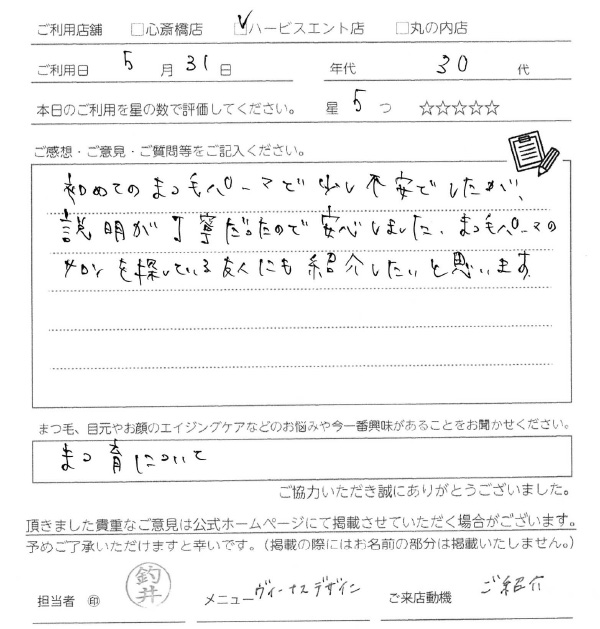 ご利用店舗 □心斎橋店 ☑ハービスエント店 □丸の内店
ご利用日 5月31日 年代 30代
本日のご利用を星の数で評価してください。 星 5つ ☆☆☆☆☆
ご感想・ご意見・ご質問等をご記入ください。
初めてのまつ毛パーマで少し不安でしたが、
説明が丁寧だったので安心しました。まつ毛パーマの
サロンを探している友人にも紹介したいと思います
まつ毛、目元やお顔のエイジングケアなどのお悩みや今一番興味があることをお聞かせください。
まつ育について
ご協力いただき誠にありがとうございました。
頂きました貴重なご意見は公式ホームページにて掲載させていただく場合がございます。
予めご了承いただけますと幸いです。（掲載の際にはお名前の部分は掲載いたしません。）
担当者 ㊞ 釣井 メニュー ヴィーナスデザイン ご来店動機 ご紹介